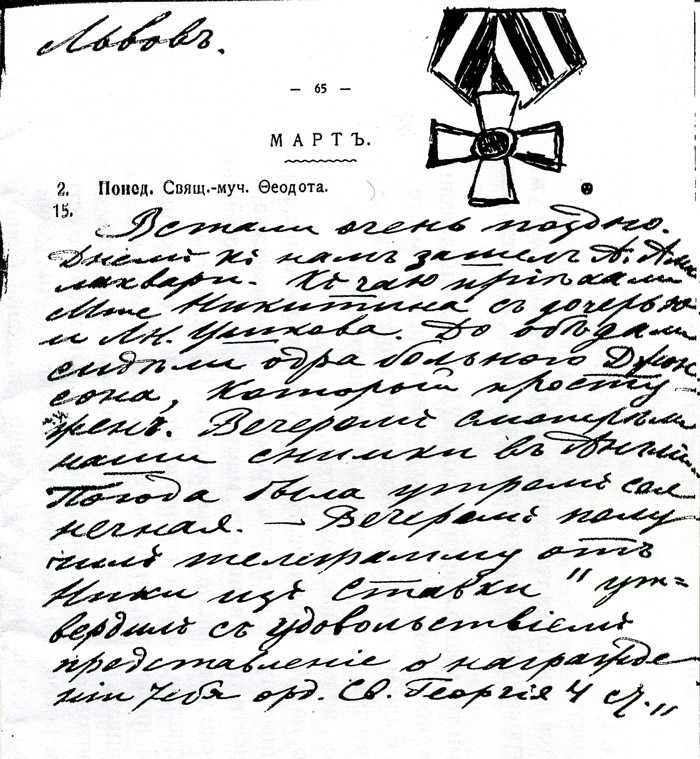 Львовъ.
— 65 —
МАРТЪ.
2. Понед. Свящ.-муч. Ѳеодота.
15.
Встали очень поздно.
Днемъ къ намъ зашелъ А. Ами
лахвари. Къ чаю пріѣхали
Mme Никитина съ дочерью
и Ушкова. До обѣда
сидѣли одра больного Джон
сона, который просту
женъ. Вечеромъ смотрѣли
наши снимки въ Англіи
Погода была утромъ сол
нечная. — Вечеромъ полу
чилъ телеграмму отъ
Ники изъ Ставки "ут=
вердилъ съ удовольствіемъ
представленіе о награжде
ніи тебя орд. Св. Георгія 4 ст."